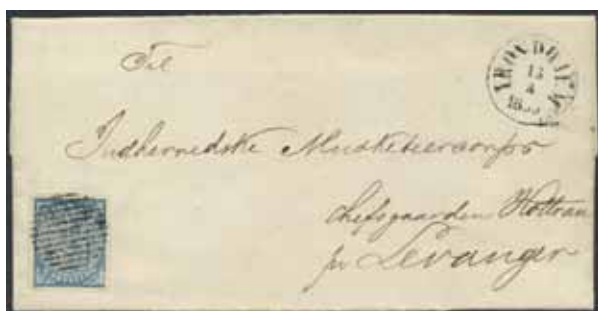 Til
TRONDHJEM
13
4
1855
Indherredske Musketeercorps
Chefsgaarden Holtran
pr Levanger